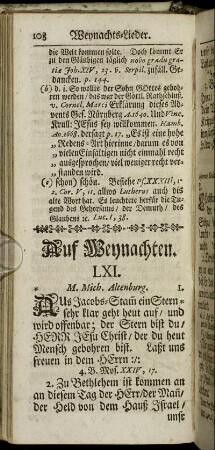 108 Weynachts-Lieder.
die Welt kommen solte. Doch kommt Er
zu den Gläubigen täglich novo gradu gra-
tiæ Joh. XIV, 23. v. Serpil. zufäll. Ge-
dancken. p. 144.
(b) d. i. So wollte der Sohn GOttes geboh-
ren werden/das war der Göttl. Rathschluß.
v. Cornel. Marci Erklärung dieses Ad-
vents Ges. Nürnberg
derselbe sagt p. 17. „Es ist eine hohe
„ Redens-Art hierinne/darum es von
„ vielen Einfältigen nicht einmahl recht
„ ausgesprochen/viel weniger recht ver-
„ standen wird.
(c) schon) schön. Besehe
2. Cor. V, 11. allwo Lutherus auch dis
alte Wort hat. Es leuchtete herfür die Tu-
gend des Gehorsams/ der Demuth/ des
Glaubens ꝛc. Luc. I, 38.
Auf Weynachten.
LXI.
M. Mich. Altenburg. 1.
AUs Jacobs-Stam̃ ein Stern
sehr klar geht heut auf/ und
wird offenbar; der Stern bist du/
HERR JEsu Christ/ der du heut
Mensch gebohren bist. Laßt uns
freuen in dem HErrn :/:
4. B. Mos. XXIV, 17.
2. Zu Bethlehem ist kommen an
an diesem Tag der HErr/der Mañ/
der Held von dem Hauß Israel/
unser